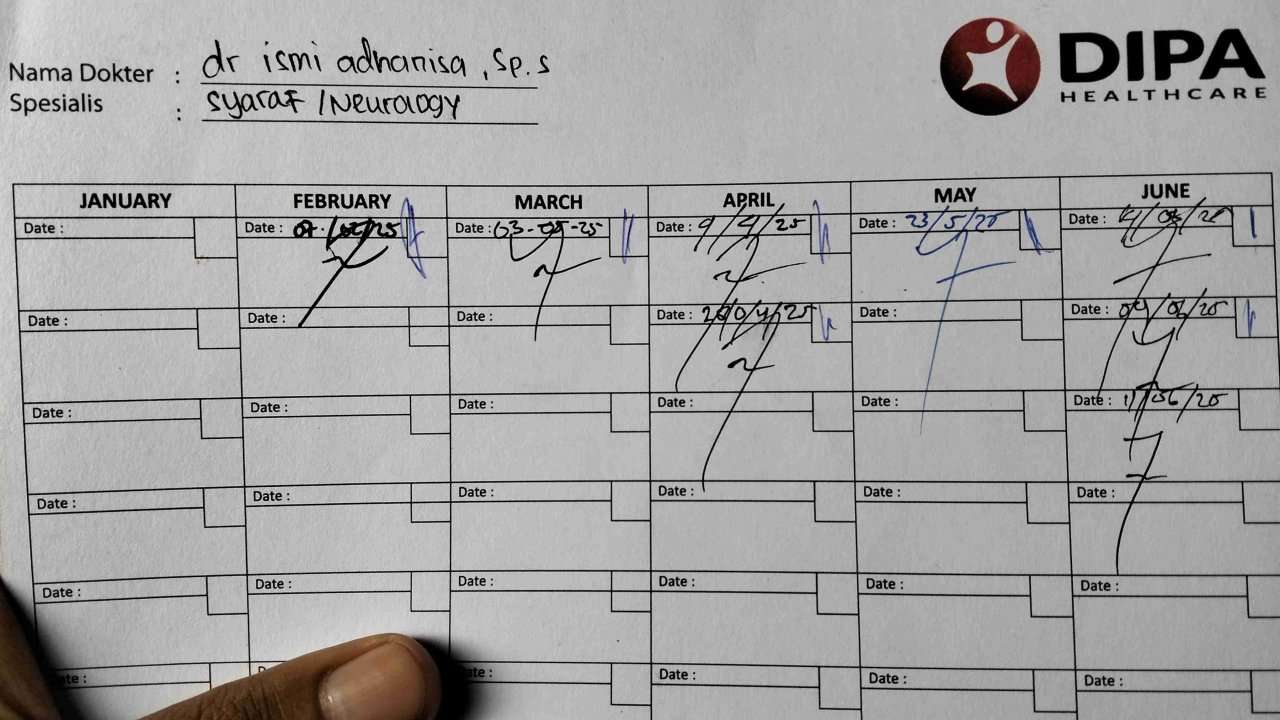 DIPA
HEALTHCARE
Nama Dokter : dr ismi adhanisa, Sp.S
Spesialis : Syaraf / Neurology
JANUARY FEBRUARY MARCH APRIL MAY JUNE
Date : Date : Date : 03-03-25 Date : 9/4/25 Date : 23/5/25 Date :
Date : Date : Date : Date : Date : Date : 04/06/25
Date : Date : Date : Date : Date : Date : 11/06/25
Date : Date : Date : Date : Date : Date :
Date : Date : Date : Date : Date : Date :
Date : Date : Date : Date :